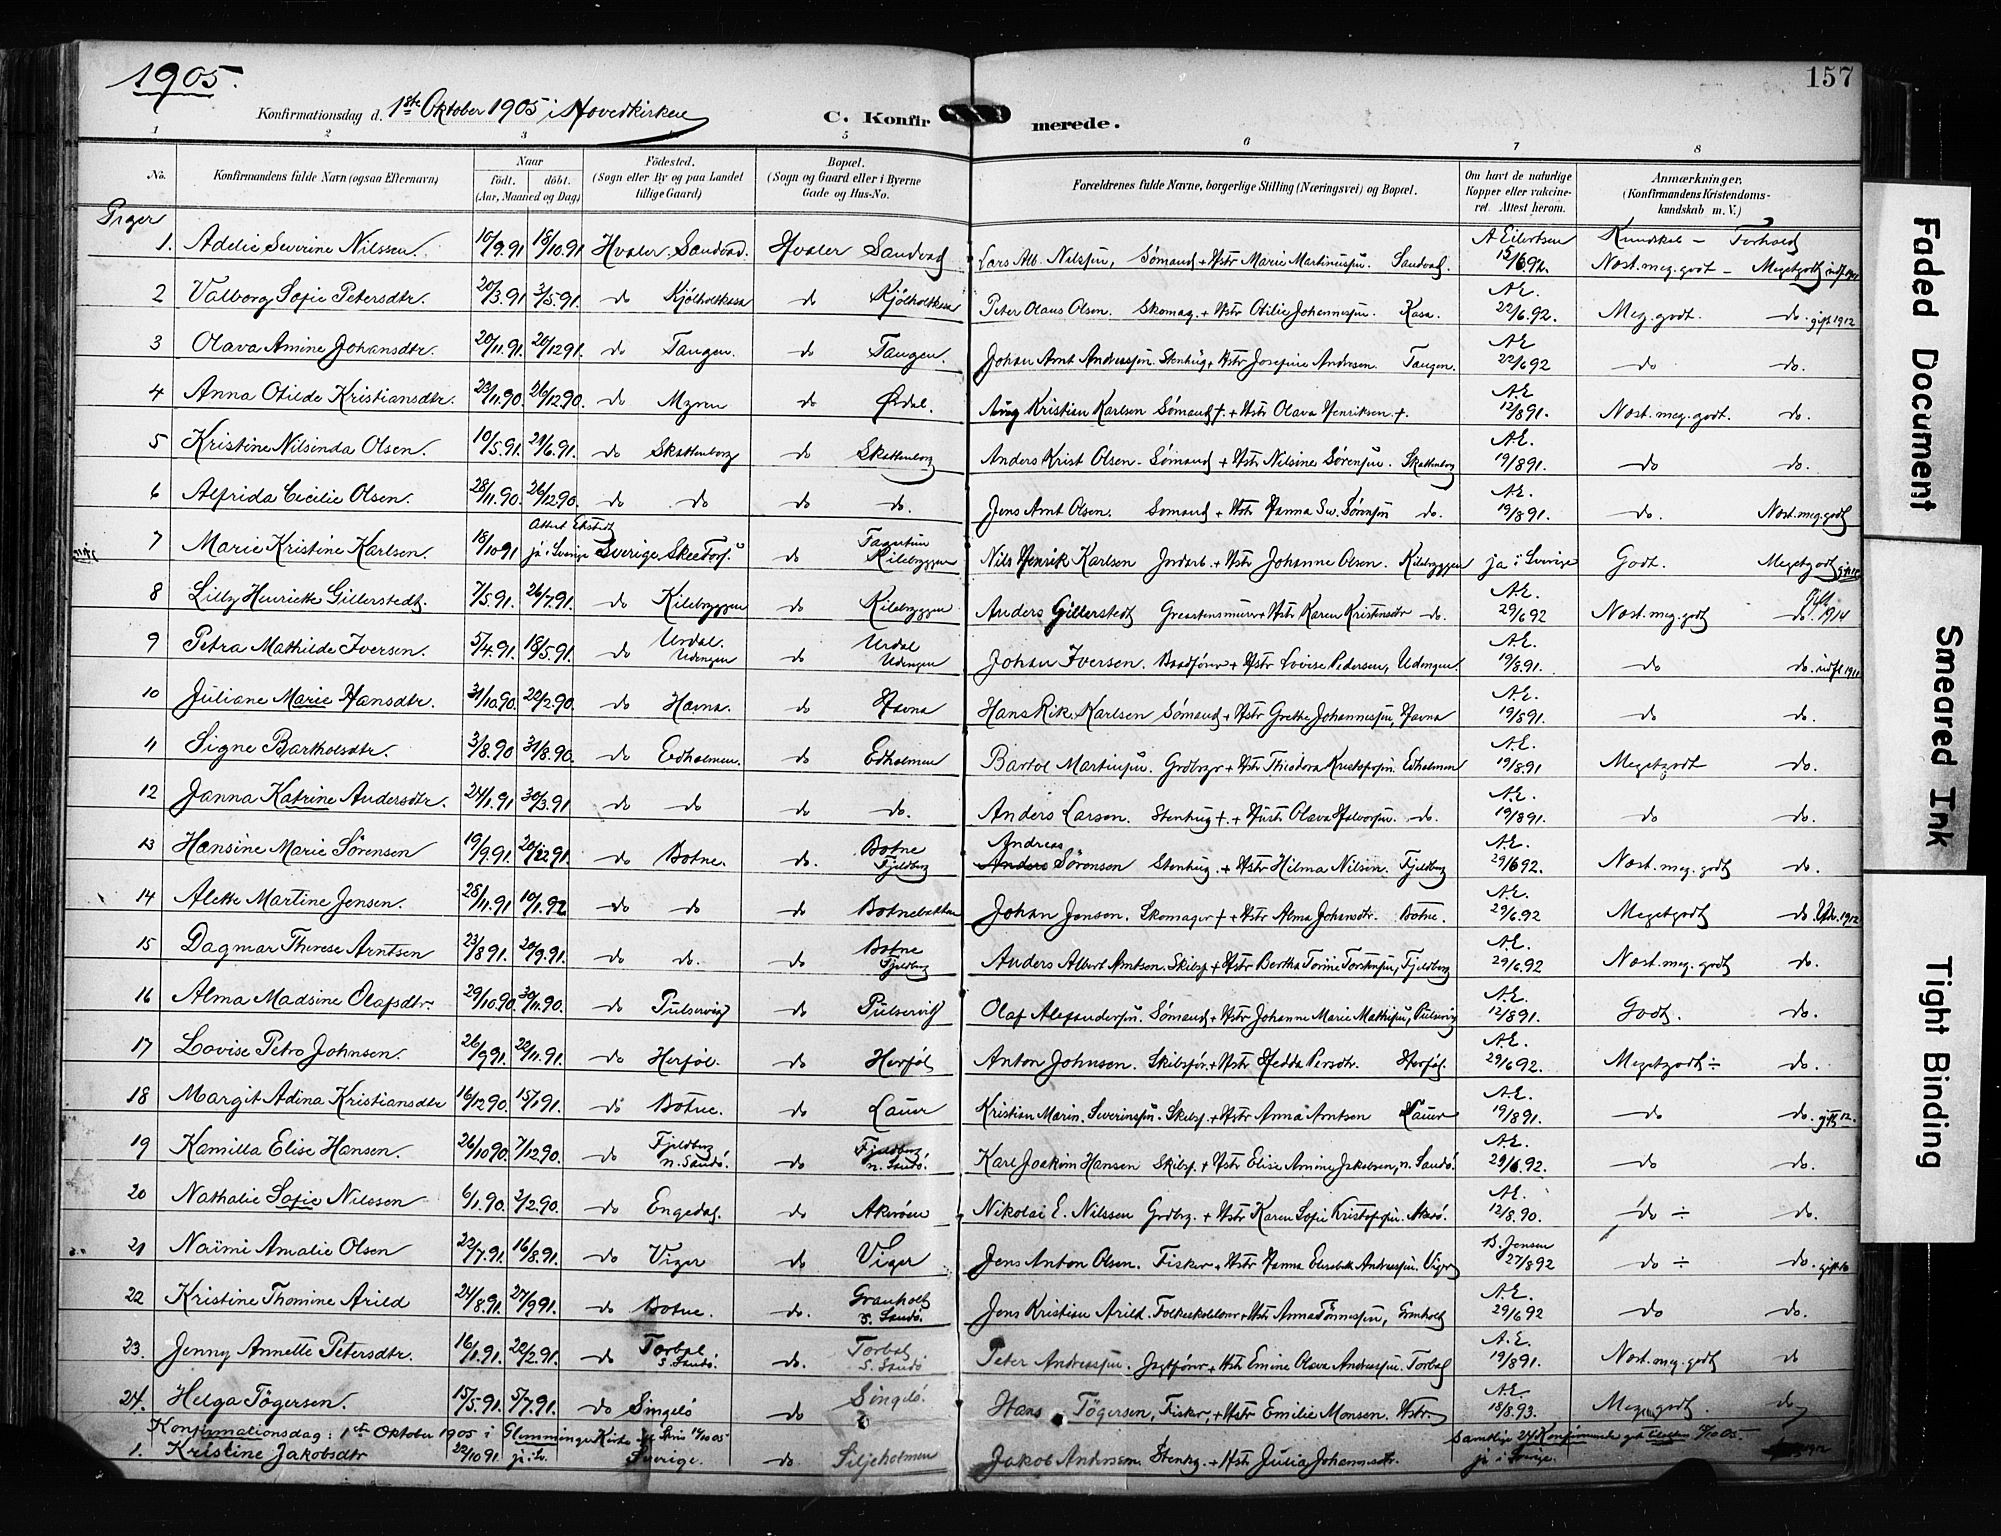 1905.
157
Konfirmationsdag d. 1ste Oktober 1905 i Hovedkirken
C. Konfirmerede.
1 2 3 4 5 6 7 8
No.
Konfirmandens fulde Navn (ogsaa Efternavn)
Naar
født. døbt.
(Aar, Maaned og Dag)
Fødested.
(Sogn eller By og paa Landet
tillige Gaard)
Bopæl.
(Sogn og Gaard eller i Byerne
Gade og Hus-No.
Forældrenes fulde Navne, borgerlige Stilling (Næringsvei) og Bopæl.
Om havt de naturlige
Kopper eller vaccine-
ret. Attest herom.
Anmærkninger,
(Konfirmandens Kristendoms-
kundskab m. V.)
Piger
1. Adelie Severine Nilssen. 10/9.91 18/10.91 Hvaler. Sandvad. Hvaler Sandvad Lars Alb. Nilsen, Sømand + Hstr Marie Martinusen. Sandvad. A Eilertsen 12/6.92. Kundskab - Forhold Nost. meg. godt - Megetgodt
2 Valborg Sofie Petersdtr. 20/3.91 3/5.91. do Kjølholtkasa do Kjølholtkasa Peter Olaus Olsen. Skomag. + Hstr Otilie Johannesen. Kasa. A.E. 22/6.92. Meg. godt. do. gift 1912
3 Olava Amine Johansdtr. 20/11.91. 20/12 91. do Tangen. do Tangen. Johan Arnt Andreassen. Stenhug + Hstr Josefine Andresen. Tangen. A.E 22/6 92 do do.
4 Anna Otilde Kristiansdtr. 23/11.90. 26/12 90. do Myren do Ørdal. Aug Kristian Karlsen Sømand †. + Hstr Olava Henriksen †. A.E. 12/8 91. Nost. meg. godt. do.
5 Kristine Nilsinda Olsen. 10/5.91. 21/6.91. do Skattenborg do Skattenborg Anders Krist Olsen - Sømand + Hstr Nilsine Sørensen. Skattenborg A.E. 19/8 91. do do.
6 Alfrida Cecilie Olsen. 28/11.90. 26/12 90. do do do do. Jens Arnt Olsen. Sømand + Hstr Hanna Sev. Sørensen do. A.E. 19/8 91. do. Nost. meg. godt
7 Marie Kristine Karlsen. 18/10 91 ja i Sverige Sverige Skee do Kilebryggen Nils Henrik Karlsen Jordarb. + Hstr Johanne Olsen. Kilebryggen ja i Sverige Godt. Megetgodt
8 Lilly Henriette Gillerstedt. 7/5.91. 26/7.91. do Kilebryggen do Kilebryggen Anders Gillerstedt + Hstr Karen Kristensdtr do. A.E. 29/6 92 Nost. meg. godt gift do. 1914
9 Petra Mathilde Iversen. 5/4.91. 18/5.91. do Urdal. Udengen do Urdal Udengen Johan Iversen. Baadfører + Hstr Lovise Pedersen, Udengen. A.E. 19/8 91. do do.
10 Juliane Marie Hansdtr. 31/10.90. 22/2.90. do Havna. do Havna Hans Rik. Karlsen Sømand + Hstr Grethe Johannesen, Havna A.E. 19/8 91. do do.
11 Signe Bartholsdtr. 3/8.90 31/8.90. do Edholmen. do Edholmen Bartol Martinsen. Grdbrgr + Hstr Theodora Kristofersen. Edholmen A.E. 19/8.91 Megetgodt do.
12 Janna Katrine Andersdtr. 24/1.91 30/3.91 do do do do. Anders Larsen. Stenhug †. + Hustr Olava Halvorsen. do. A.E. 19/8 91. do do.
13 Hansine Marie Sørensen 19/9.91. 20/12 91. do Botne. do. Botne Fjeldberg Andreas Anders Sørensen Stenhug. + Hstr Hilma Nilsen. Fjeldberg A.E. 29/6 92. Nost. meg. godt do.
14 Alette Martine Jensen. 28/11.91 10/1.92 do do do Botnebakken Johan Jensen. Skomager † + Hstr Alma Johansdtr. Botne. A.E. 29/6.92 Megetgodt do.
15 Dagmar Therese Arntsen 23/8 91. 20/9.91. do do. do Botne Fjeldberg Anders Albert Arntsen. Skibsf + Hstr Bertha Torine Torstensen, Fjeldberg A.E. 29/6.92 Nost. meg. godt do.
16 Alma Madsine Olafsdtr. 29/10.90. 30/11.90. do Pulservig do Pulservig Olaf Alexandersen. Sømand + Hstr Johanne Marie Mathisen, Pulservig A.E. 12/8 91. Godt. do.
17 Lovise Petro Johnsen. 26/9 91. 22/11.91. do Herføl. do Herføl Anton Johnsen. Skibsfør. + Hstr Hedda Persdtr. Herføl. A.E. 29/6 92. Megetgodt ÷ do.
18 Margit Adina Kristiansdtr 16/12 90. 15/1 91. do Botne. do Lauer Kristian Marin. Severinsen. Skibsf. + Hstr Anna Arntsen Lauer A.E. 19/8 91. do do. gift 12.
19 Kamilla Elise Hansen. 26/10 90. 7/12 90. do Fjeldberg n. Sandø. do Fjeldberg n. Sandø. Karl Joakim Hansen Skibsf. + Hstr Elise Amine Jakobsen, n. Sandø. A.E. 29/6.92. do do.
20 Nathalie Sofie Nilssen 6/1.90. 2/2.90. do Engedal. do Akerøen Nikolai E. Nilssen Grdbrg. + Hstr Karen Sofie Kristofersen. Akerø. A.E. 12/8.90. do ÷ do.
21 Naimi Amalie Olsen 22/7.91. 16/8.91. do Viger do Viger Jens Anton Olsen. Fisker + Hstr Hanna Elisabeth Andreassen. Viger B. Jensen 27/8 92 do ÷ do. gift 16
22 Kristine Thomine Arild 24/8.91. 27/9 91. do Botne. do. Granholt s. Sandø. Jens Kristian Arild. Folkeskolelærer + Hstr Anna Tønnesen, Granholt A.E. 29/6 92 do do.
23. Jenny Annette Petersdtr. 16/1.91. 22/2.91. do Torbal s. Sandø. do. Torbal s. Sandø Peter Andreassen. Jagtfører + Hstr Emine Olava Andreassen. Torbal A.E. 19/8 91. Nost. meg. godt do
24. Helga Tøgersen. 15/5.91. 5/7.91. do Singelø do Singelø. Hans Tøgersen, Fisker, + Hstr Emilie Monsen. Hstr A.E. 18/8.93. Meg. godt. do
Konfirmationsdag: 1ste Oktober 1905 i Glemminge Kirke Samtlige 24 Konfirmander
1. Kristine Jakobsdtr 22/10 91. ja i Sv. Sverige. do. Siljeholmen Jakob Andersen. Stenhg. + Hstr Julia Johannesdtr. ja i Sverige.
Faded Document
Smeared Ink
Tight Binding